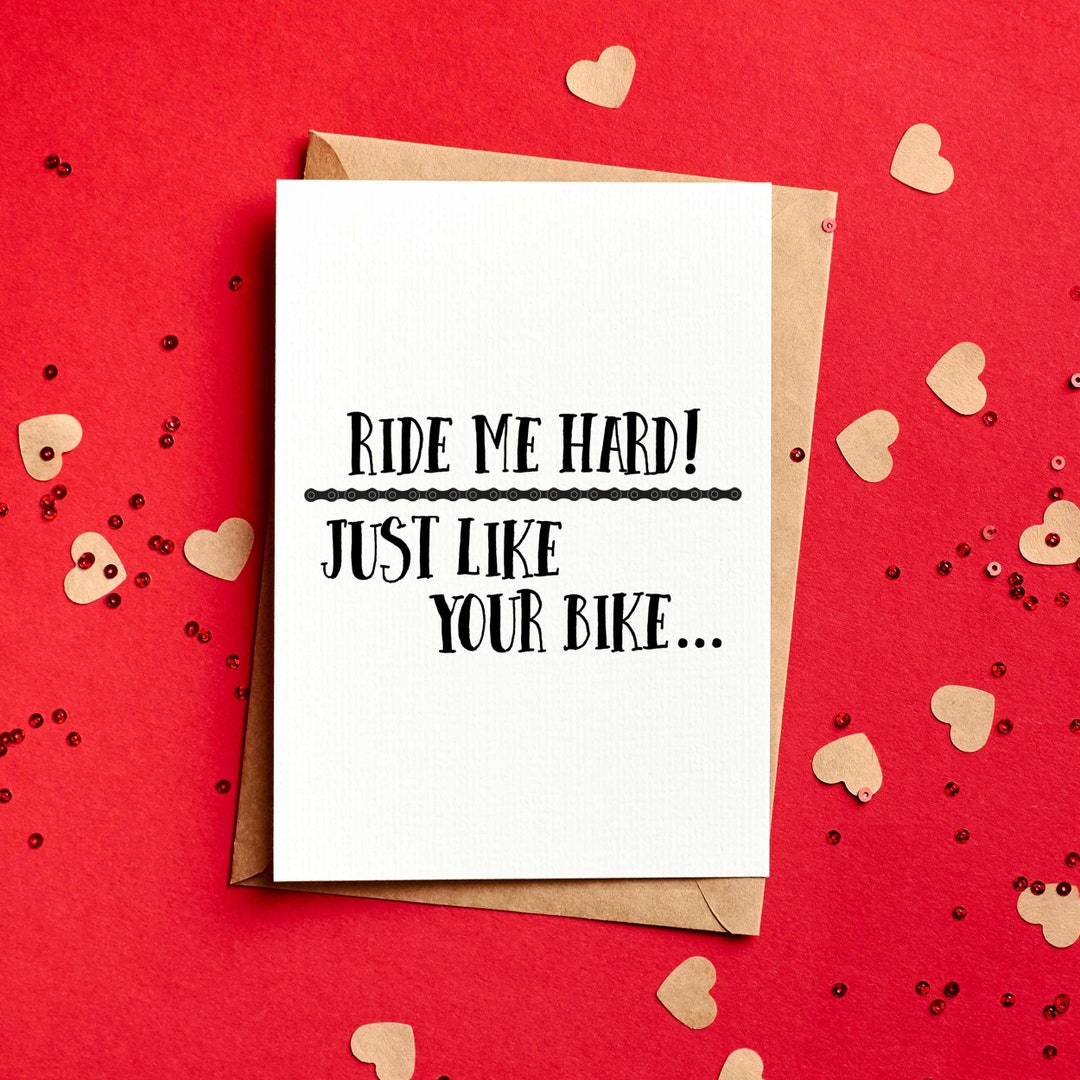 RIDE ME HARD!
JUST LIKE
YOUR BIKE...